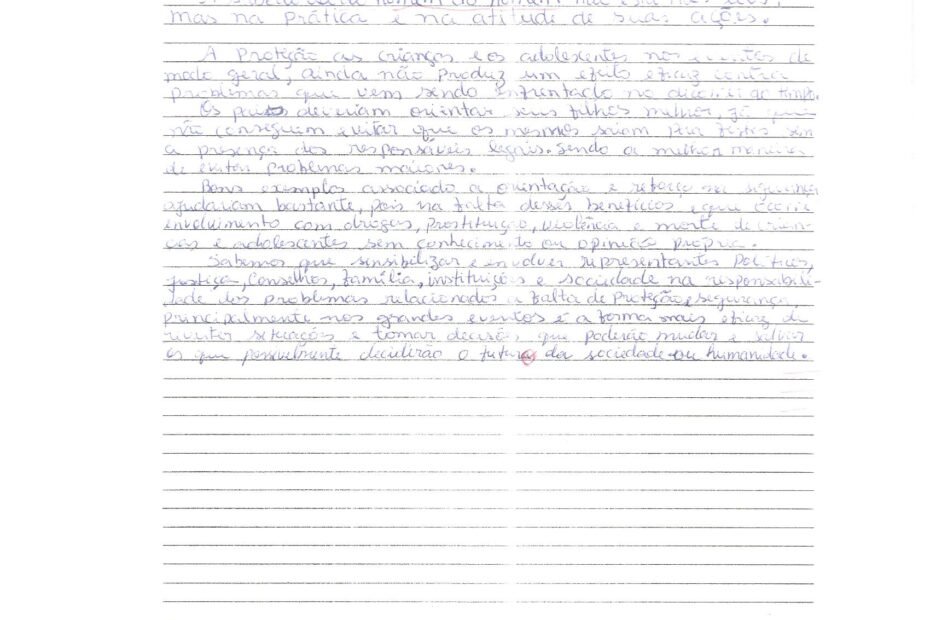 mas na prática e na atitude de suas ações.
A Proteção as crianças e os adolescentes nos eventos de
modo geral, ainda não produz um efeito eficaz contra
problemas que vem sendo enfrentado no decorrer do tempo.
Os pais deveriam orientar seus filhos melhor, já que
não conseguem evitar que os mesmos saiam pra festas sem
a presença dos responsáveis legais. Sendo a melhor maneira
de evitar problemas maiores.
Bons exemplos associado a orientação e reforço na segurança
ajudariam bastante, pois na falta desses benefícios é que ocorre
envolvimento com drogas, prostituição, violência e morte de crian-
ças e adolescentes sem conhecimento ou opinião própria.
Sabemos que sensibilizar e envolver representantes Políticos,
justiça, Conselhos, família, instituições e sociedade na responsabili-
dade dos problemas relacionados a falta de Proteção e segurança,
principalmente nos grandes eventos é a forma mais eficaz de
reverter situações e tomar decisões que poderão mudar e salvar
os que possivelmente decidirão o futuro da sociedade ou humanidade.